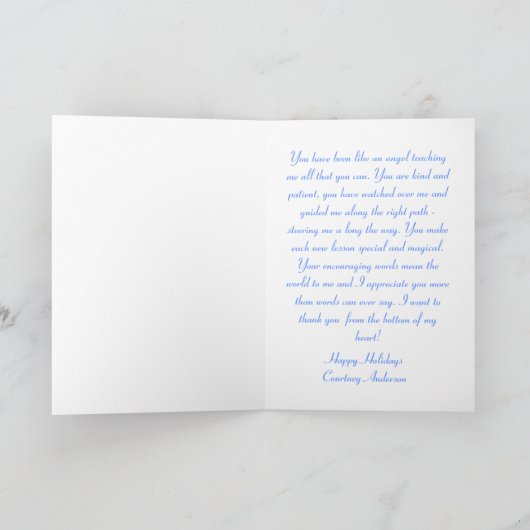 You have been like an angel teaching
me all that you can. You are kind and
patient, you have watched over me and
guided me along the right path -
steering me a long the way. You make
each new lesson special and magical.
Your encouraging words mean the
world to me and I appreciate you more
than words can ever say. I want to
thank you  from the bottom of my
heart!
Happy Holidays
Courtney Anderson